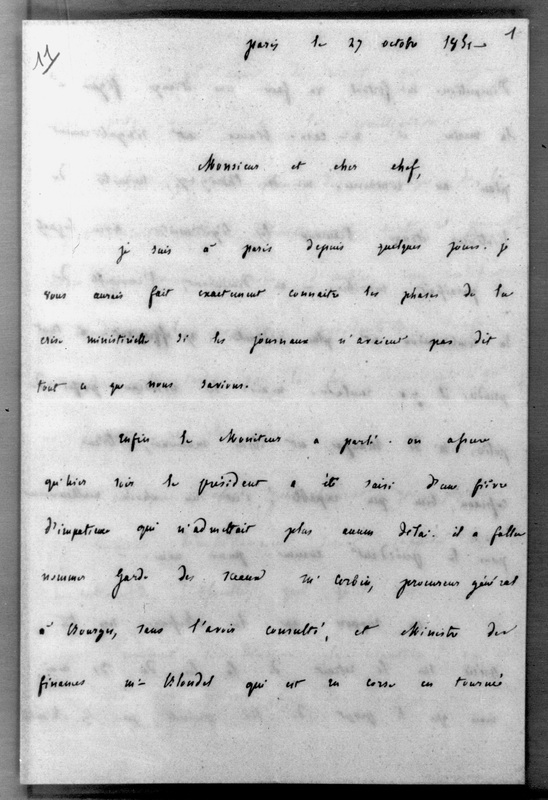 11
1
paris le 27 octobre 1851
Monsieur et cher chef,
je suis à paris depuis quelques jours. je
vous aurais fait exactement connaitre les phases de la
crise ministérielle si les journaux n'avaient pas dit
tout ce que nous savions.
Enfin le Moniteur a parlé. on assure
qu'hier soir le président a été saisi d'une fièvre
d'impatience qui n'admettait plus aucun délai. il a fallu
nommer Garde des sceaux Mr Corbin, procureur général
à Bourges, sans l'avoir consulté, et Ministre des
finances Mr Blondel qui est en corse en tournée